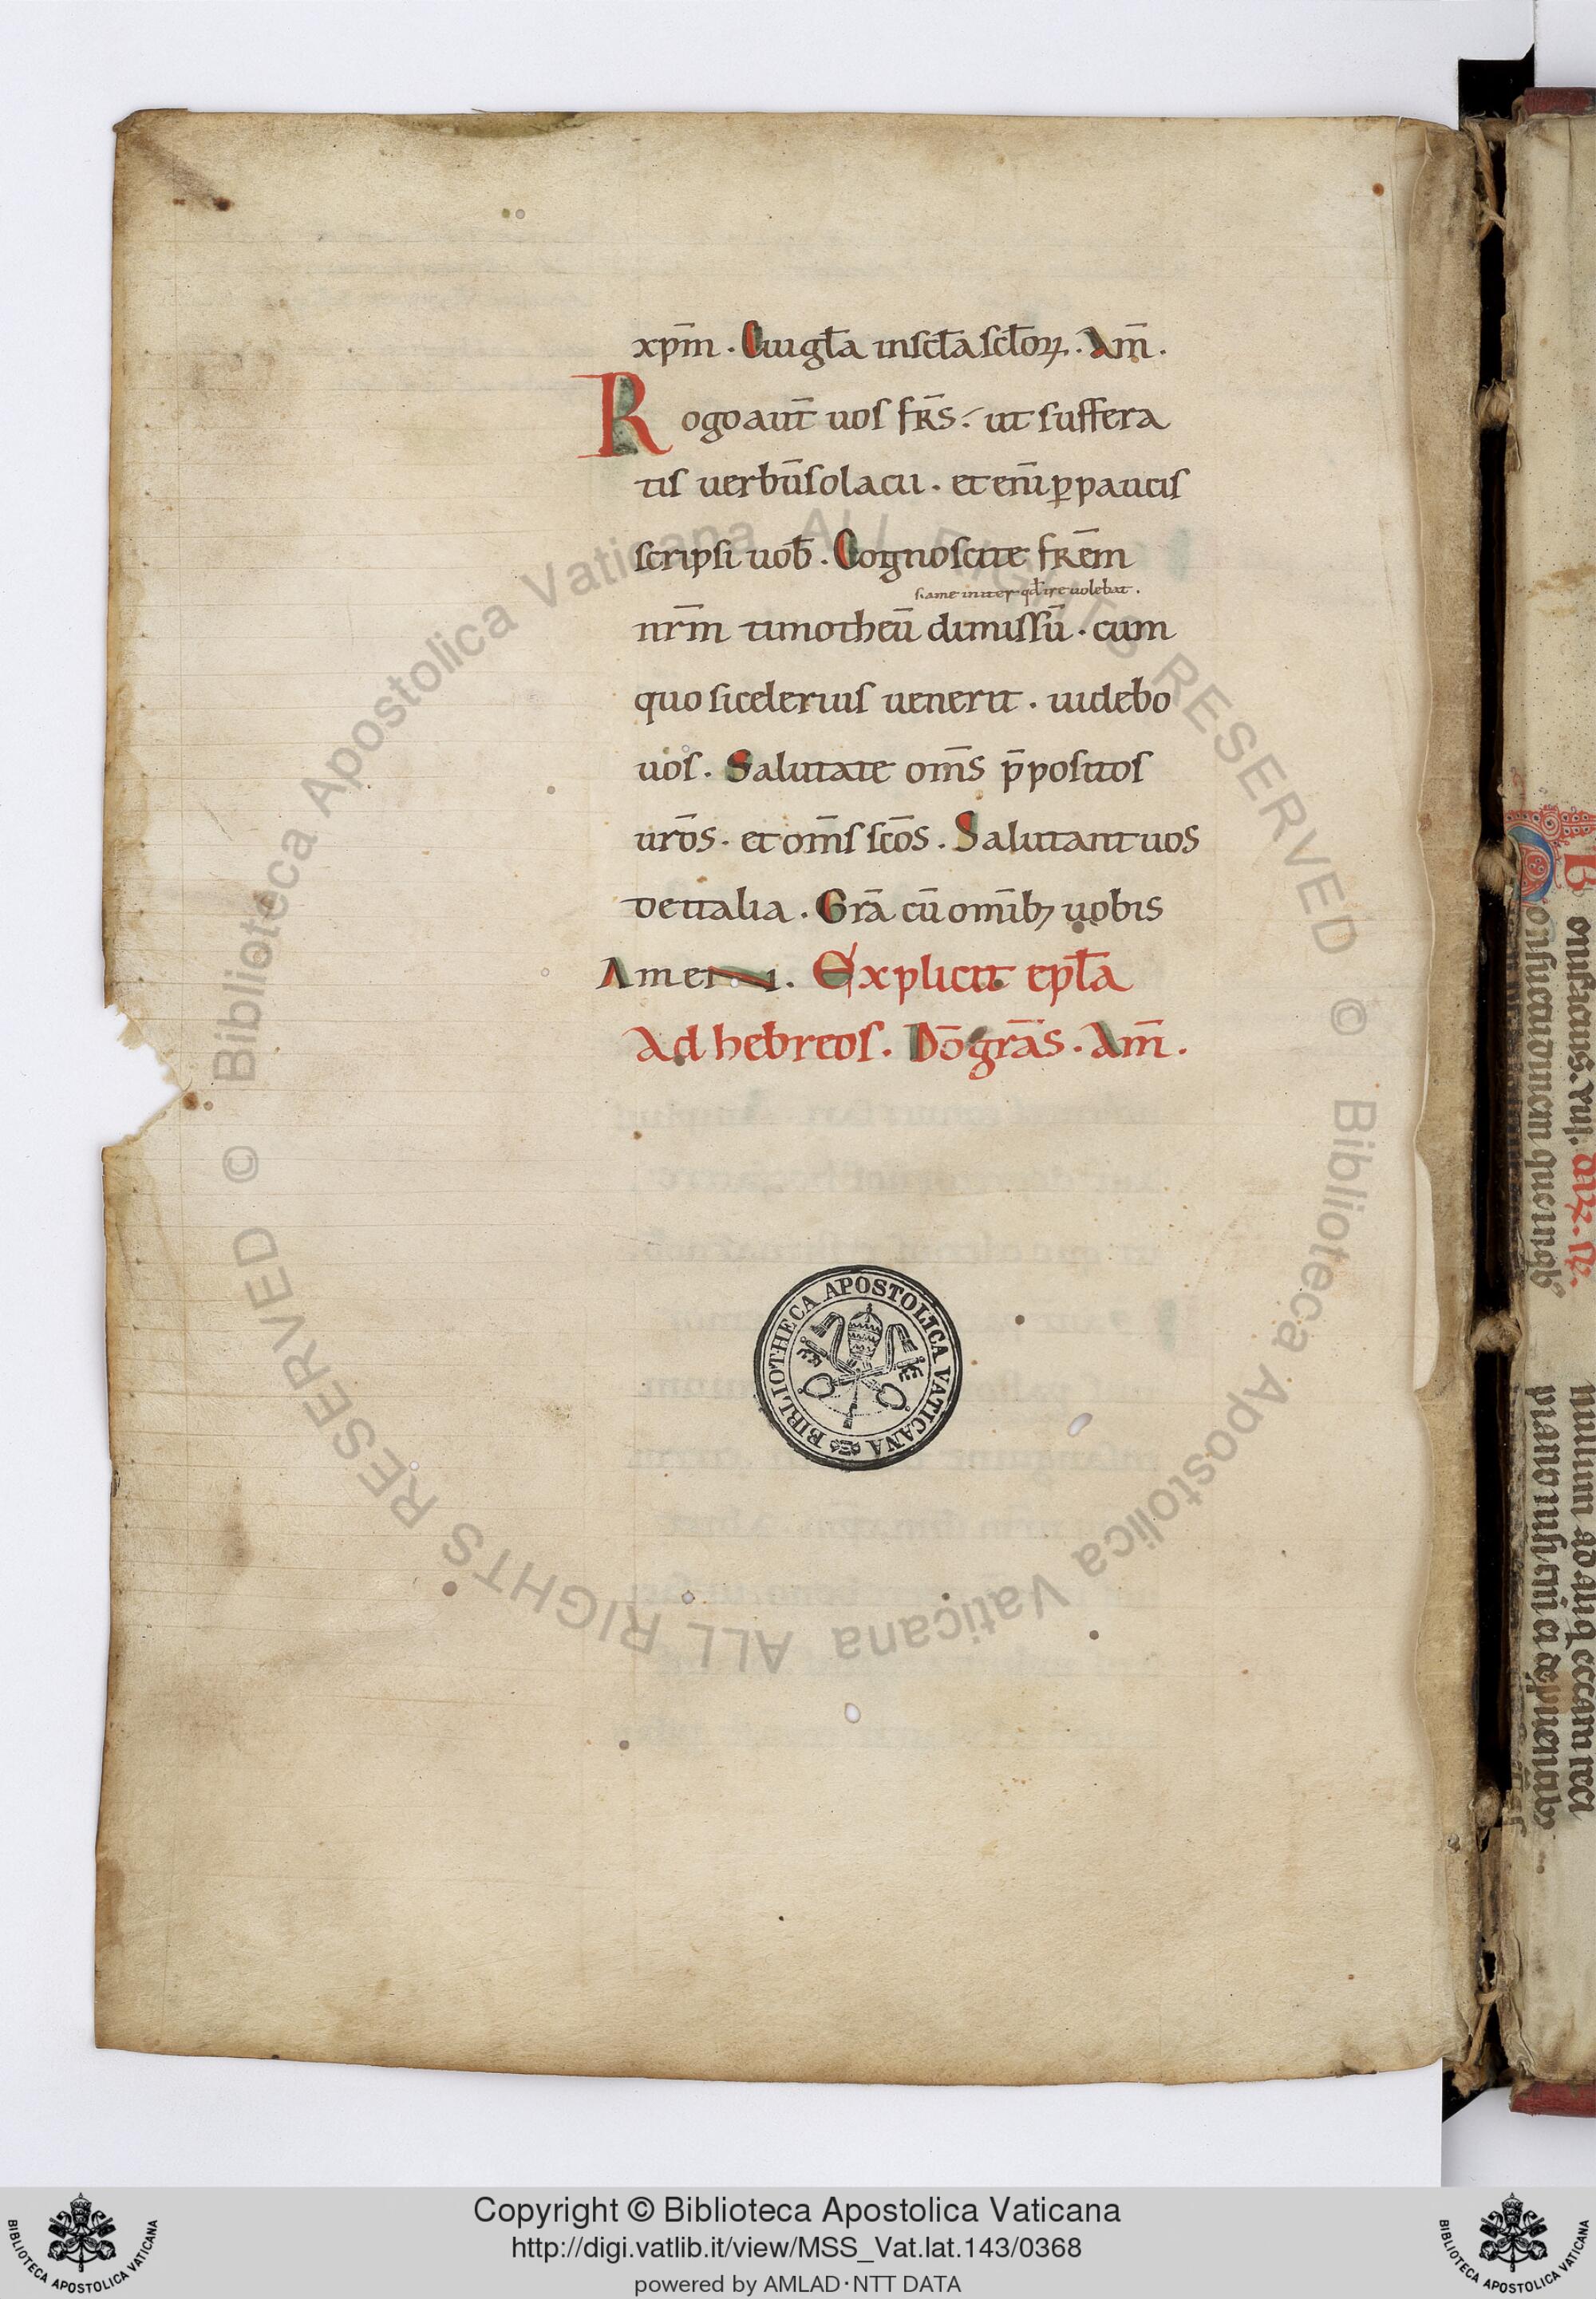 xp̄m . Cui gl̄a in scl̄a scl̄oꝝ . Am̄ .
Rogo aut̄ uos fr̄s . ut suffera
tis uerbū solacii . et enī ꝑ paucis
scripsi uob̄ . Cognoscite fr̄em
s. a me in iter qd̄ ire uolebat .
nr̄m timotheū dimissū . cum
quo si celerius uenerit . uidebo
uos . Salutate om̄s p̄positos
urōs . et om̄s sc̄os . Salutant uos
de italia . Gr̄a cū omībꝫ uobis
Amen . Explicit epl̄a
Ad hebreos . Dō grās . Am̄ .
BIBLIOTHECA APOSTOLICA VATICANA
© Biblioteca Apostolica Vaticana ALL RIGHTS RESERVED
© Biblioteca Apostolica Vaticana ALL RIGHTS RESERVED
Copyright © Biblioteca Apostolica Vaticana
http://digi.vatlib.it/view/MSS_Vat.lat.143/0368
powered by AMLAD·NTT DATA
BIBLIOTECA APOSTOLICA VATICANA
BIBLIOTECA APOSTOLICA VATICANA